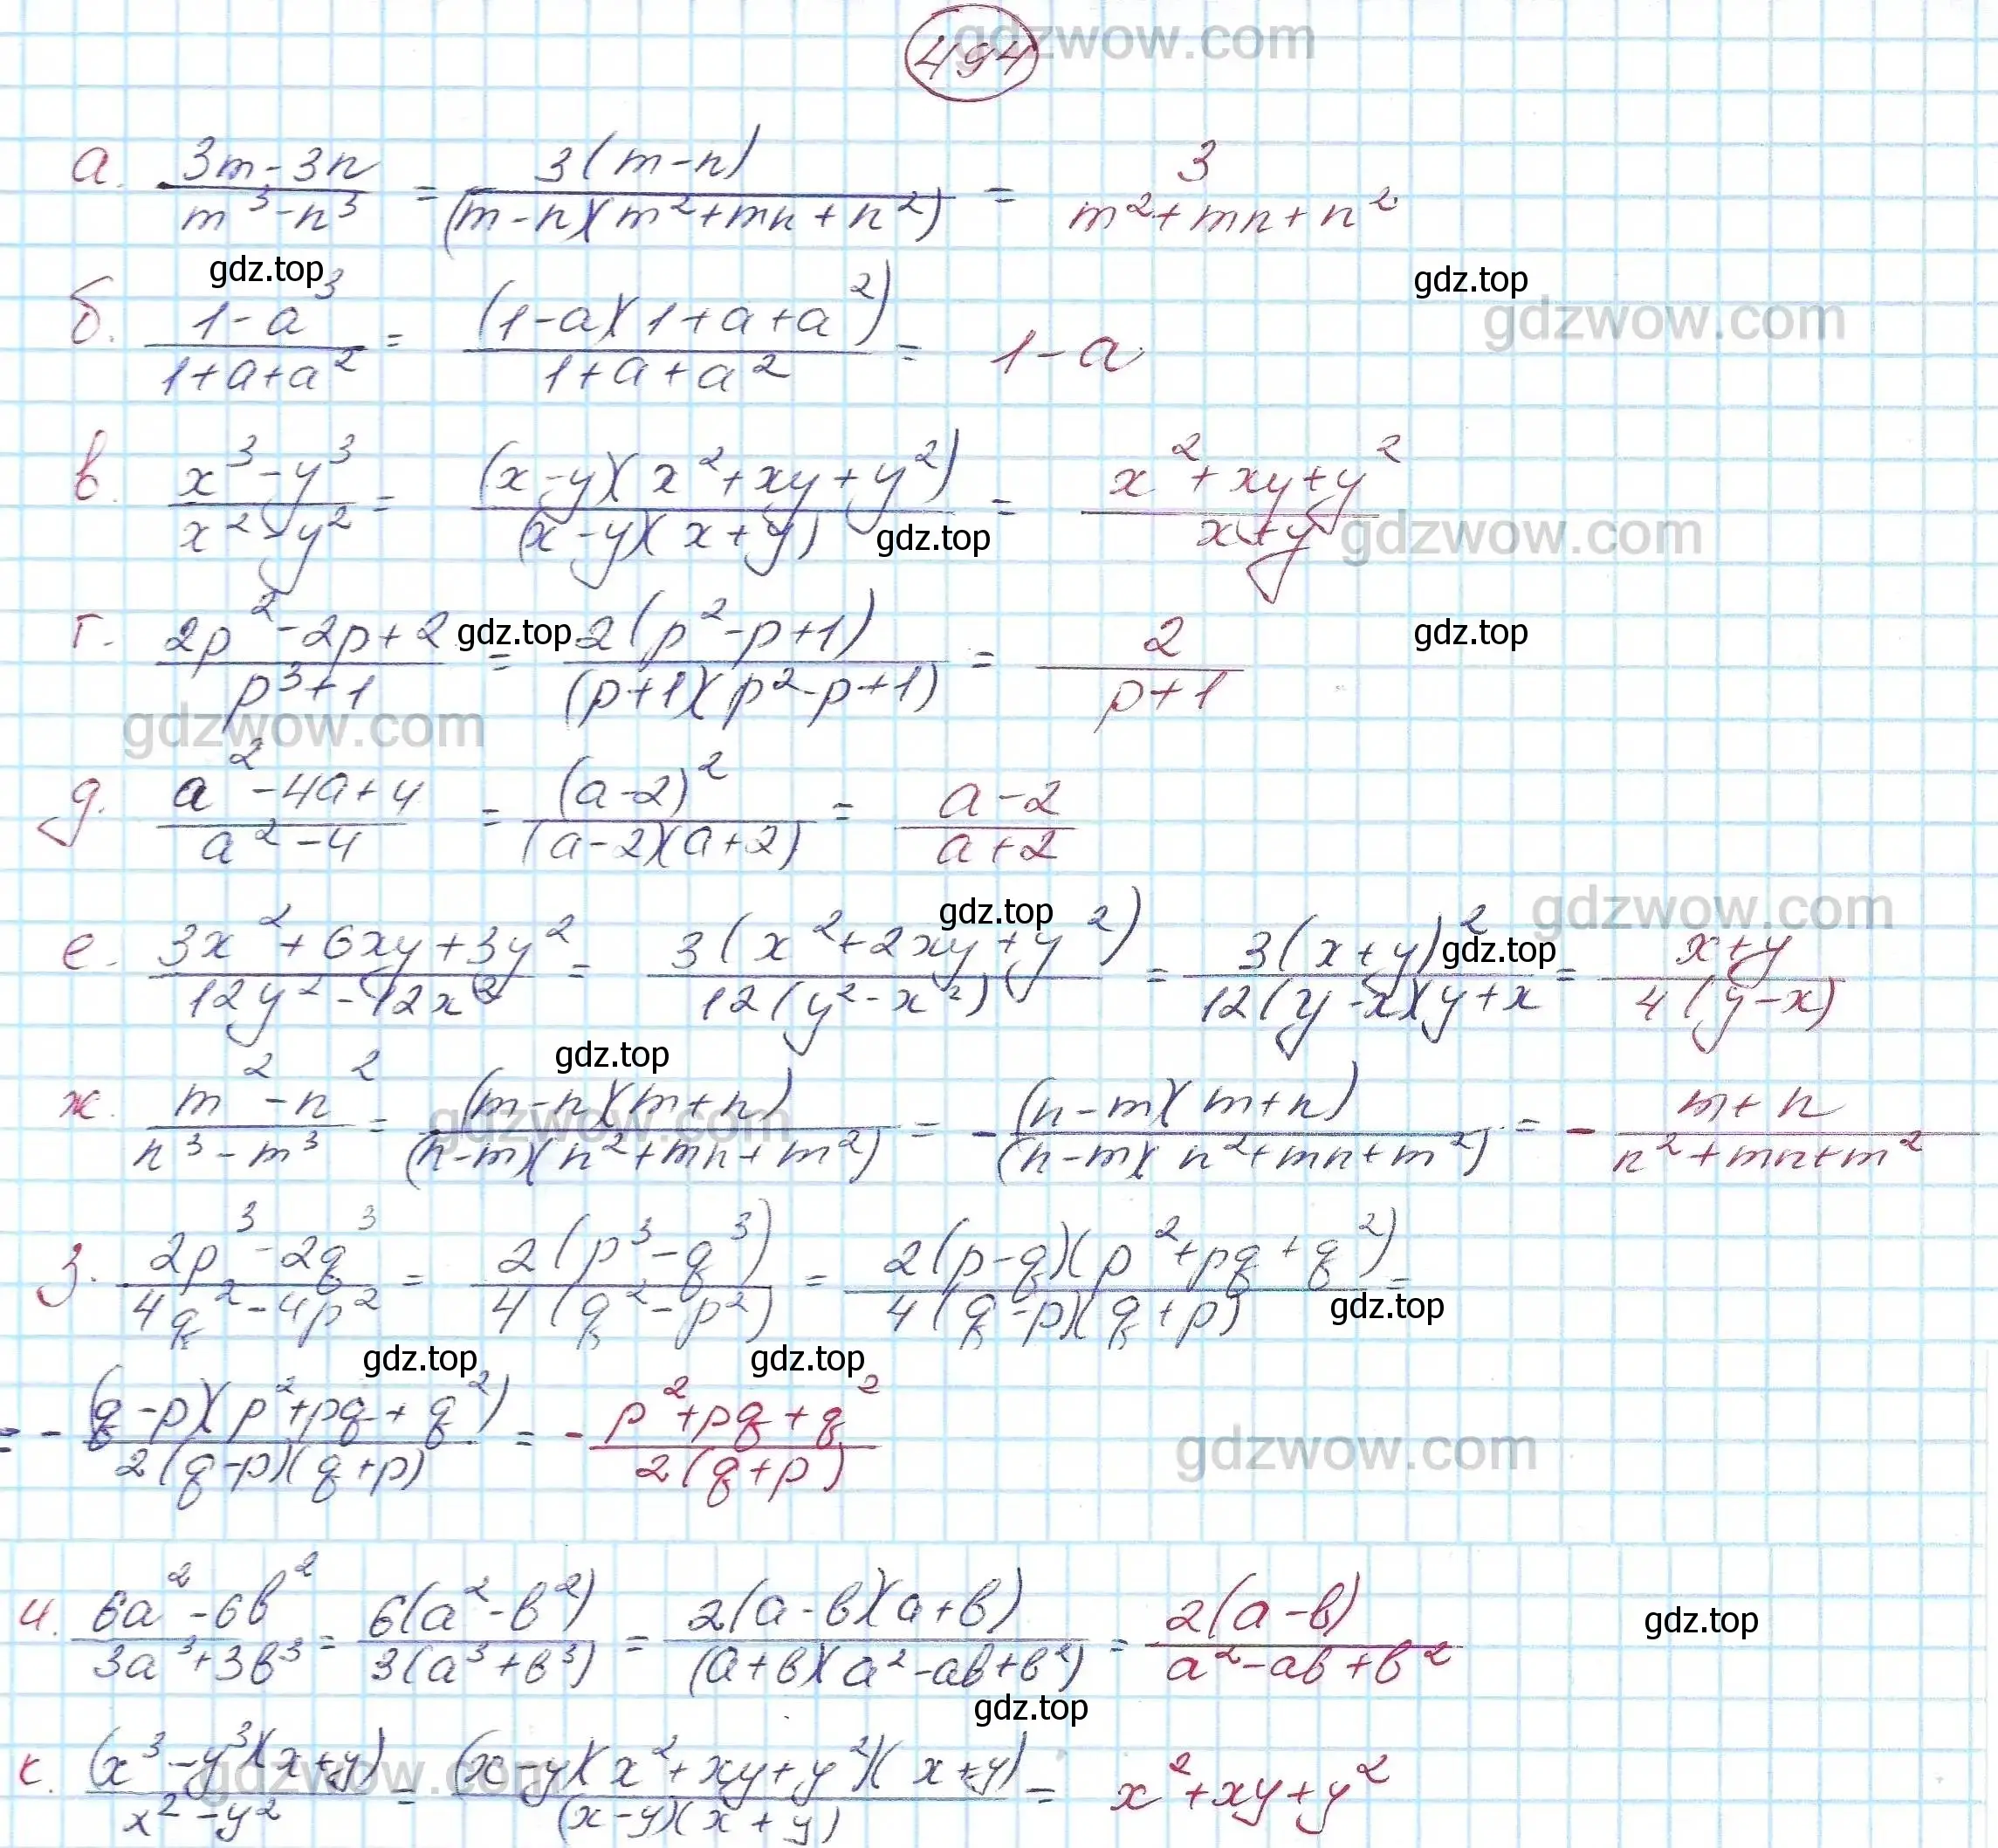 gdzwow.com
494
а. (3m-3n)/(m³-n³) = 3(m-n)/((m-n)(m²+mn+n²)) = 3/(m²+mn+n²)
gdz.top gdz.top
б. (1-a³)/(1+a+a²) = (1-a)(1+a+a²)/(1+a+a²) = 1-a
gdzwow.com
в. (x³-y³)/(x²-y²) = (x-y)(x²+xy+y²)/((x-y)(x+y)) = (x²+xy+y²)/(x+y)
gdz.top gdzwow.com
г. (2p²-2p+2)/(p³+1) = 2(p²-p+1)/((p+1)(p²-p+1)) = 2/(p+1)
gdz.top gdz.top
gdzwow.com
д. (a²-4a+4)/(a²-4) = (a-2)²/((a-2)(a+2)) = (a-2)/(a+2)
gdz.top gdzwow.com
е. (3x²+6xy+3y²)/(12y²-12x²) = 3(x²+2xy+y²)/(12(y²-x²)) = 3(x+y)²/(12(y-x)(y+x) = (x+y)/(4(y-x))
gdz.top
gdz.top
ж. (m²-n²)/(n³-m³) = (m-n)(m+n)/((n-m)(n²+mn+m²)) = -(n-m)(m+n)/((n-m)(n²+mn+m²)) = -(m+n)/(n²+mn+m²)
gdzwow.com
з. (2p³-2q³)/(4q²-4p²) = 2(p³-q³)/(4(q²-p²)) = 2(p-q)(p²+pq+q²)/(4(q-p)(q+p)) =
gdz.top
gdz.top gdz.top
= -(q-p)(p²+pq+q²)/(2(q-p)(q+p)) = -(p²+pq+q²)/(2(q+p))
gdzwow.com
и. (6a²-6b²)/(3a³+3b³) = 6(a²-b²)/(3(a³+b³)) = 2(a-b)(a+b)/((a+b)(a²-ab+b²)) = 2(a-b)/(a²-ab+b²)
gdz.top
gdz.top
к. (x³-y³)(x+y)/(x²-y²) = (x-y)(x²+xy+y²)(x+y)/((x-y)(x+y)) = x²+xy+y²
gdzwow.com